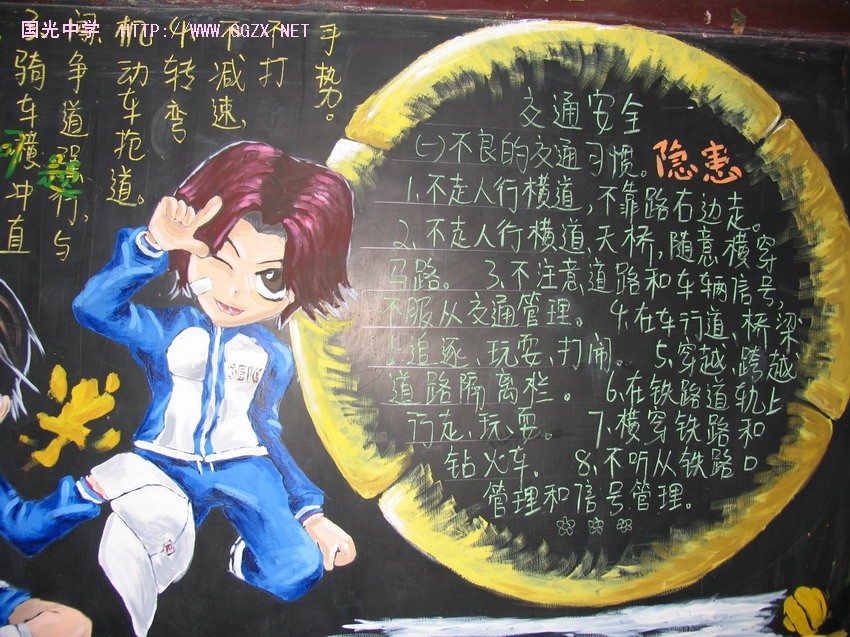 国光中学 HTTP://WWW.GGZX.NET
手势。
不打
不减速，
小转弯
机动车抢道。
骑车横冲直
交通安全
(一)不良的交通习惯。隐患
1.不走人行横道，不靠路右边走。
2.不走人行横道、天桥，随意横穿
马路。3.不注意道路和车辆信号，
不服从交通管理。4.在车行道、桥梁
上追逐、玩耍、打闹。5.穿越、跨越
道路隔离栏。6.在铁路道轨上
行走、玩耍。7.横穿铁路和
钻火车。8.不听从铁路口
管理和信号管理。